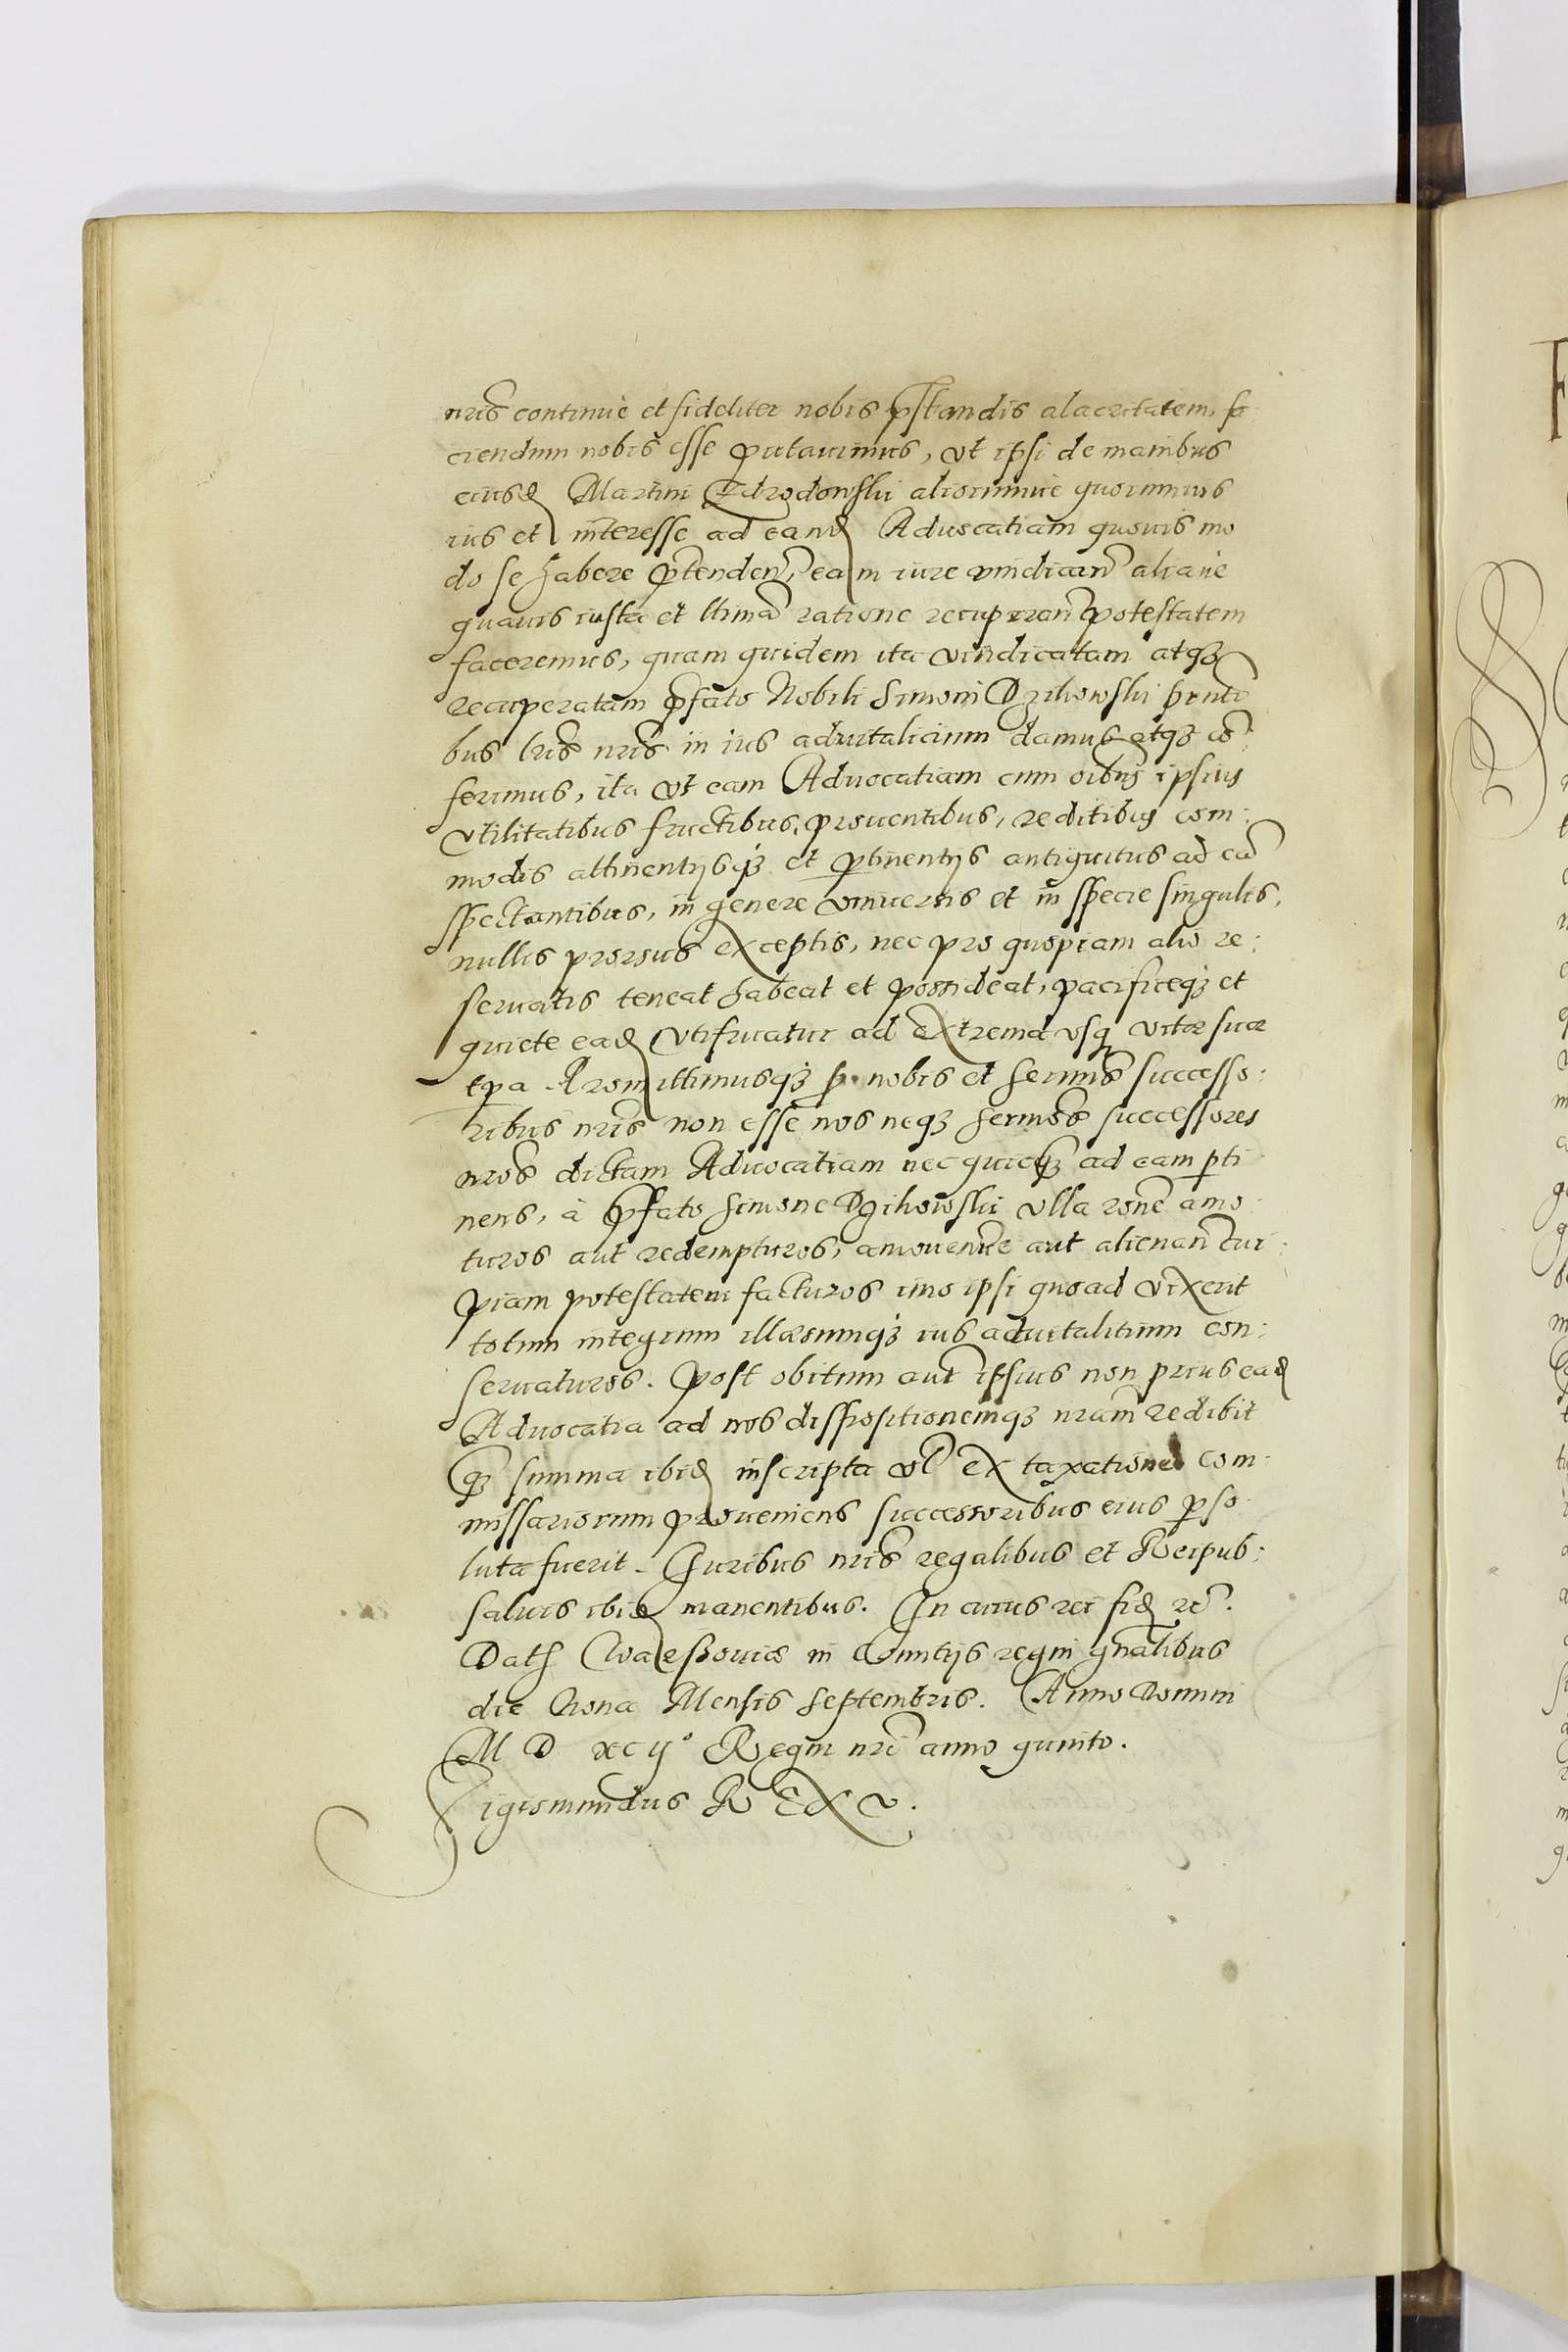 nris continue et fideliter nobis pstandis alacritatem, fa
ciendum nobis esse putauimus, vt ipsi de manibus
eiusd Martini Zdrodowski aliorumue quorumuis
ius et interesse ad eand Aduocatiam quouis mo
do se habere ptenden, eam iure vindican aliaue
quauis iusta et ltima ratione recuperan potestatem
faceremus, quam quidem ita vindicatam atq3
recuperatam pfato Nobili Simoni Dzikowski pnti
bus lris nris in ius aduitalicium damus atq3 co
ferimus, ita vt eam Aduocatiam cum oibus ipsius
vtilitatibus fructibus, prouentibus, reditibus com:
modis attinentijsq3 et ptinentijs antiquitus ad ea
spectantibus, in genere vniuersis et in specie singulis,
nullis prorsus exceptis, nec pro quopiam alio re:
seruatis teneat habeat et possideat, pacificeq3 et
quiete ead vtifruatur ad extrema vsq vitæ suæ
tpa. Promittimusq3 p nobis et sermis successo:
ribus nris non esse nos neq3 sermos successores
nros dictam Aduocatiam nec quicq3 ad eam pti
nens, à pfato Simone Dzikowski vlla rone amo
turos aut redempturos, amouendue aut alienan cui:
piam potestatem facturos imo ipsi quoad vixerit
totum integrum illæsumq3 ius aduitalitium con:
seruaturos. Post obitum aut ipsius non prius ead
Aduocatia ad nos dispositionemq3 nram redibit
q3 summa ibid inscripta vl ex taxatione com
missariorum proueniens successoribus eius pso
luta fuerit. Iuribus nris regalibus et Reipub:
saluis ibid manentibus. In cuius rei fid rc.
Dat Warssouiæ in Conuentijs regni gnalibus
die Nona Mensis Septembris. Anno Domini
M D xc ij° Regni nri anno quinto.
Sigismundus REX